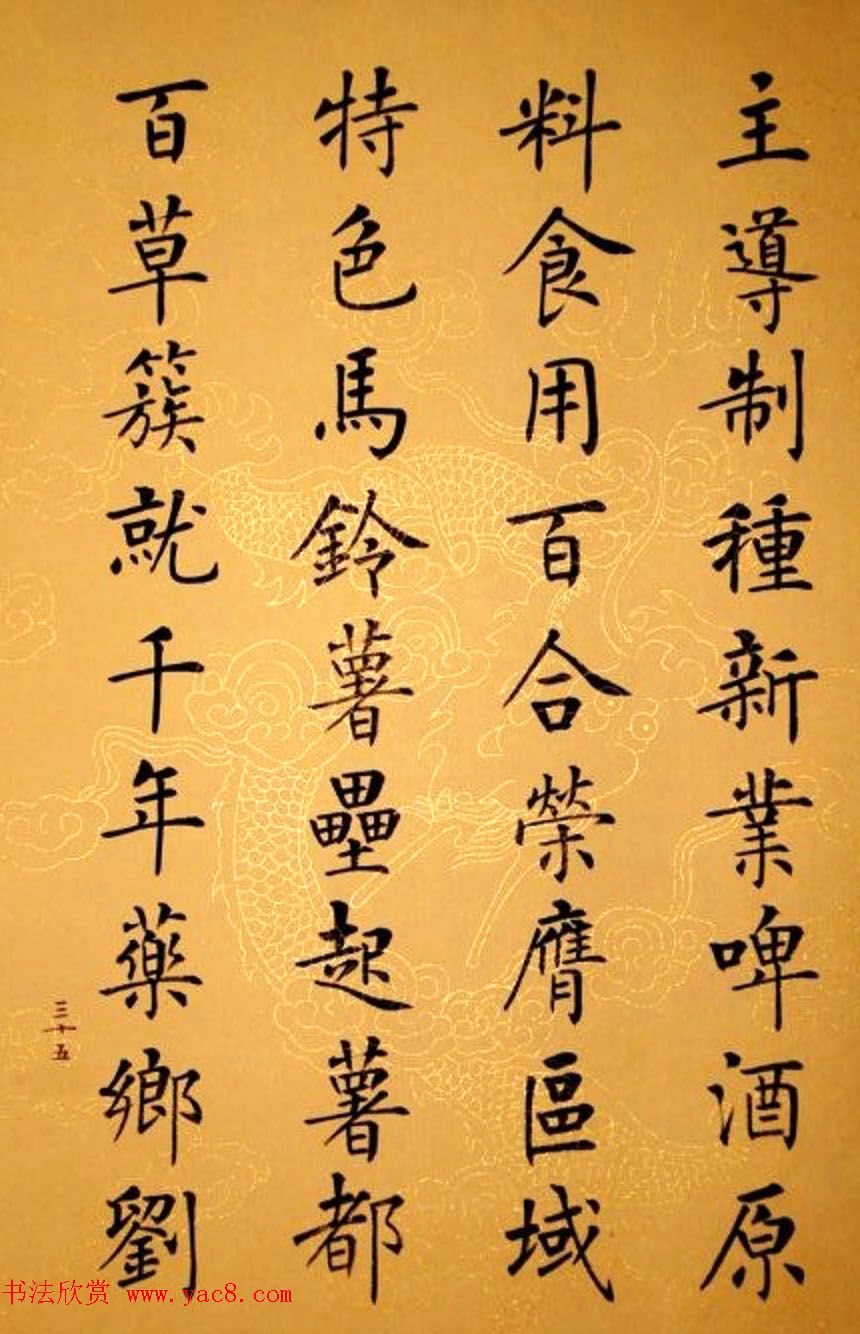 主導制種新業啤酒原
料食用百合榮膺區域
特色馬鈴薯壘起薯都
百草簇就千年藥鄉劉
三十五
书法欣赏 www.yac8.com